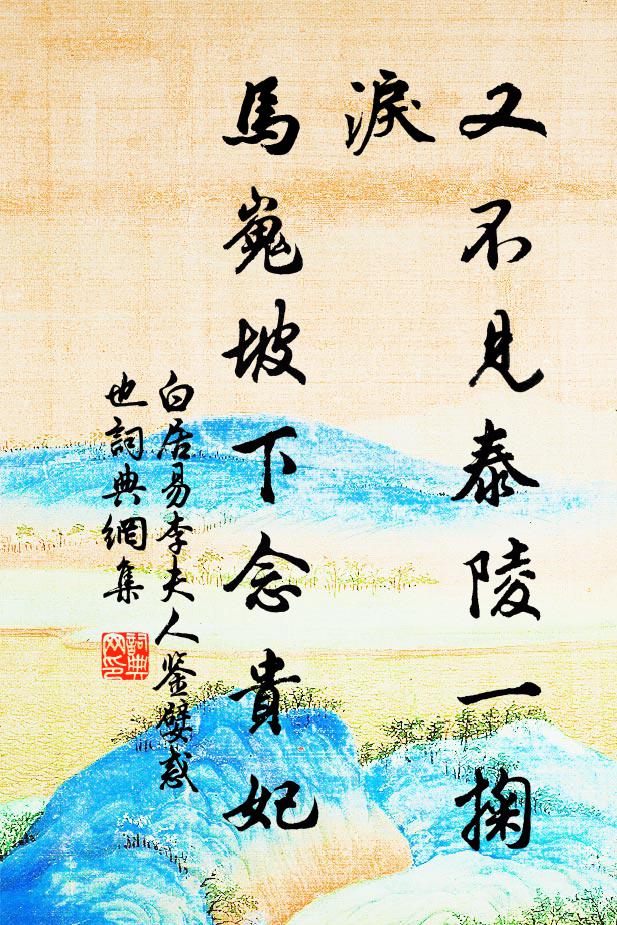 又不見泰陵一掬
淚
馬嵬坡下念貴妃
白居易李夫人鉴嬖惑
也詞典網集
詞典
网印